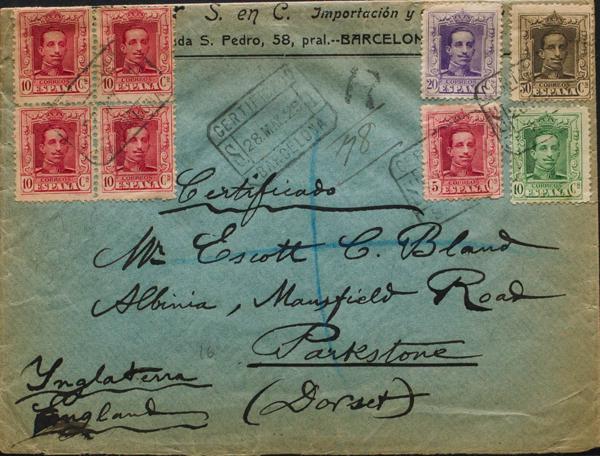 S. en C. Importación y
da S. Pedro, 58, pral.--BARCELON
10 CORREOS Cs
ESPAÑA
10 CORREOS Cs
ESPAÑA
10 CORREOS Cs
ESPAÑA
10 CORREOS Cs
ESPAÑA
20 CORREOS Cs
ESPAÑA
50 CORREOS Cs
ESPAÑA
5 CORREOS Cs
ESPAÑA
10 CORREOS Cs
ESPAÑA
28.MAY.22
BARCELONA
R
Certificado
Mr. Escott C. Bland
Albinia, Mansfield Road
Parkstone
(Dorset)
16
Ynglaterra
England